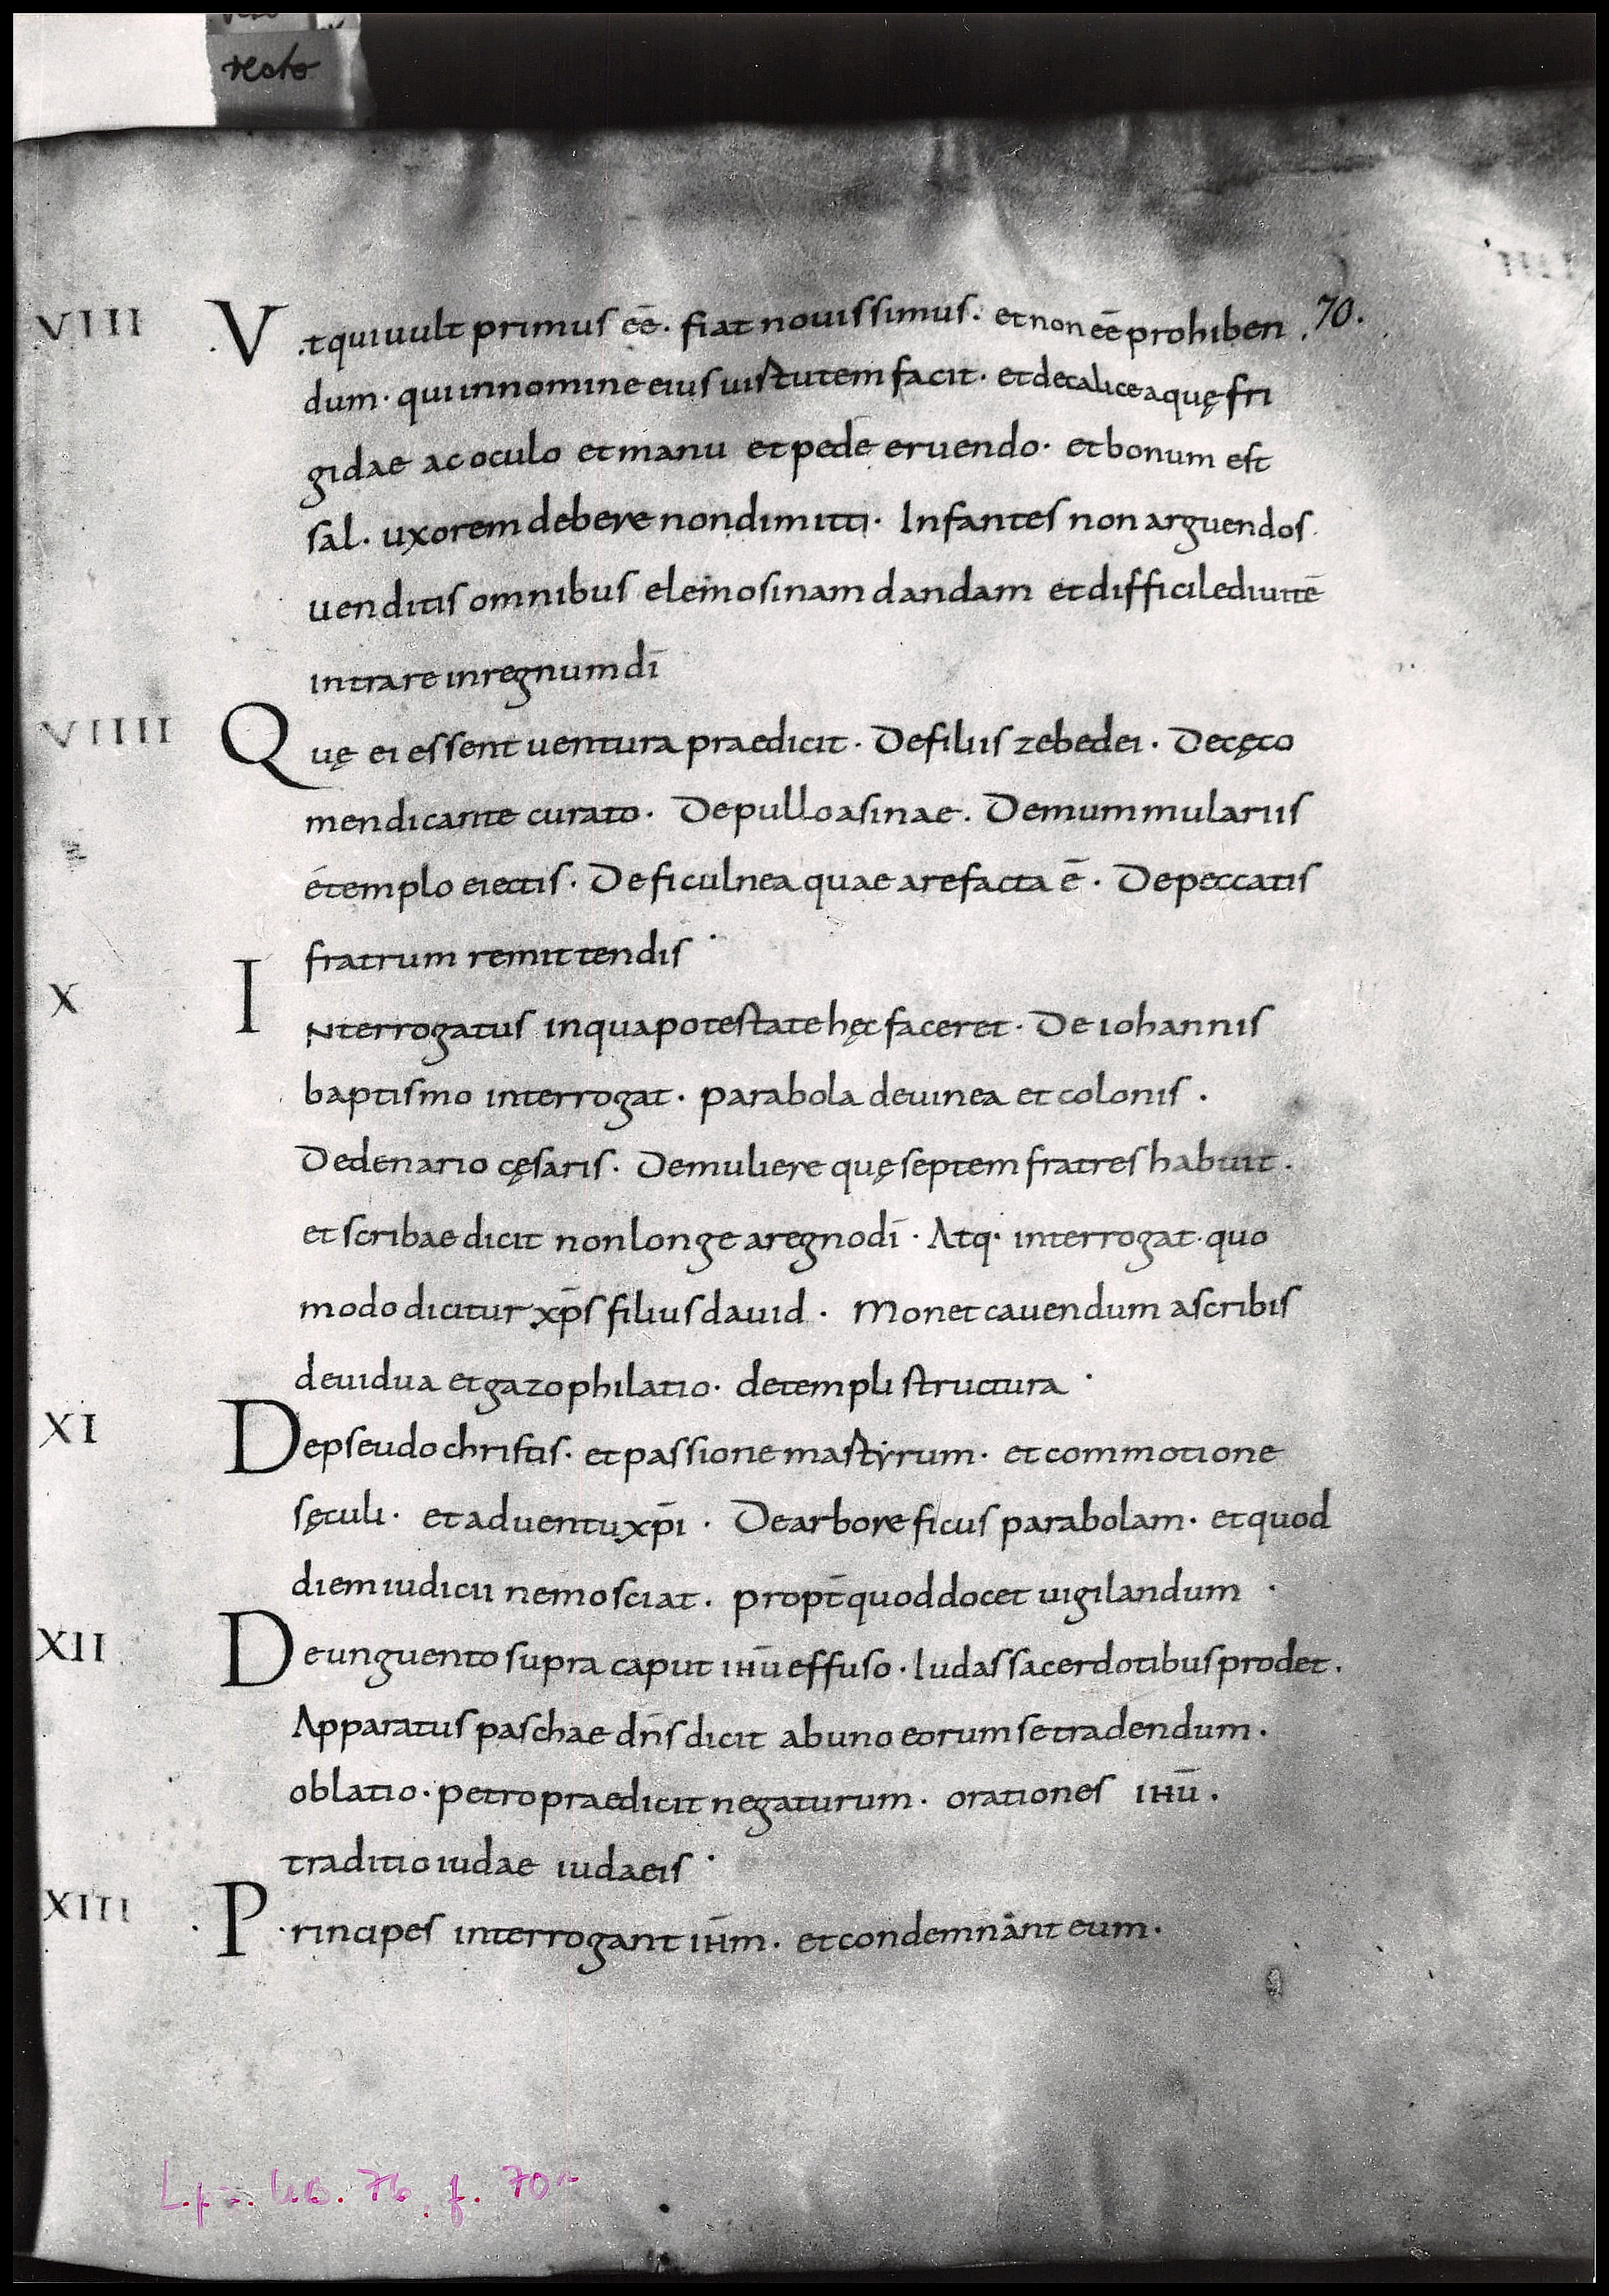 recto
VIII V .t qui uult primus eē. fiat nouissimus. et non eē prohiben 70.
dum. qui in nomine eius uirtutem facit. et de calice aquę fri
gidae ac oculo et manu et pede eruendo. et bonum est
sal. uxorem debere non dimitti. Infantes non arguendos
uenditis omnibus elemosinam dandam et difficile diuitē
intrare in regnum dī
VIIII Quę ei essent uentura praedicit. De filiis zebedei. De cęco
mendicante curato. De pullo asinae. De mummulariis
é templo eiectis. De ficulnea quae arefacta ē. De peccatis
fratrum remittendis.
X INterrogatus in qua potestate hęc faceret. De iohannis
baptismo interrogat. parabola de uinea et colonis.
De denario cęsaris. De muliere quę septem fratres habuit.
et scribae dicit non longe a regno dī. Atq. interrogat. quo
modo dicitur xp̄s filius dauid. Monet cauendum a scribis
de uidua et gazophilatio. de templi structura.
XI De pseudochristis. et passione martyrum. et commotione
sęculi. et aduentu xp̄i. De arbore ficus parabolam. et quod
diem iudicii nemo sciat. propt̄ quod docet uigilandum.
XII De unguento supra caput ihū effuso. Iudas sacerdotibus prodet.
Apparatus paschae dn̄s dicit ab uno eorum se tradendum.
oblatio. petro praedicit negaturum. orationes ihū.
traditio iudae iudaeis.
XIII P.rincipes interrogant ihm̄. et condemnant eum.
f. 70r